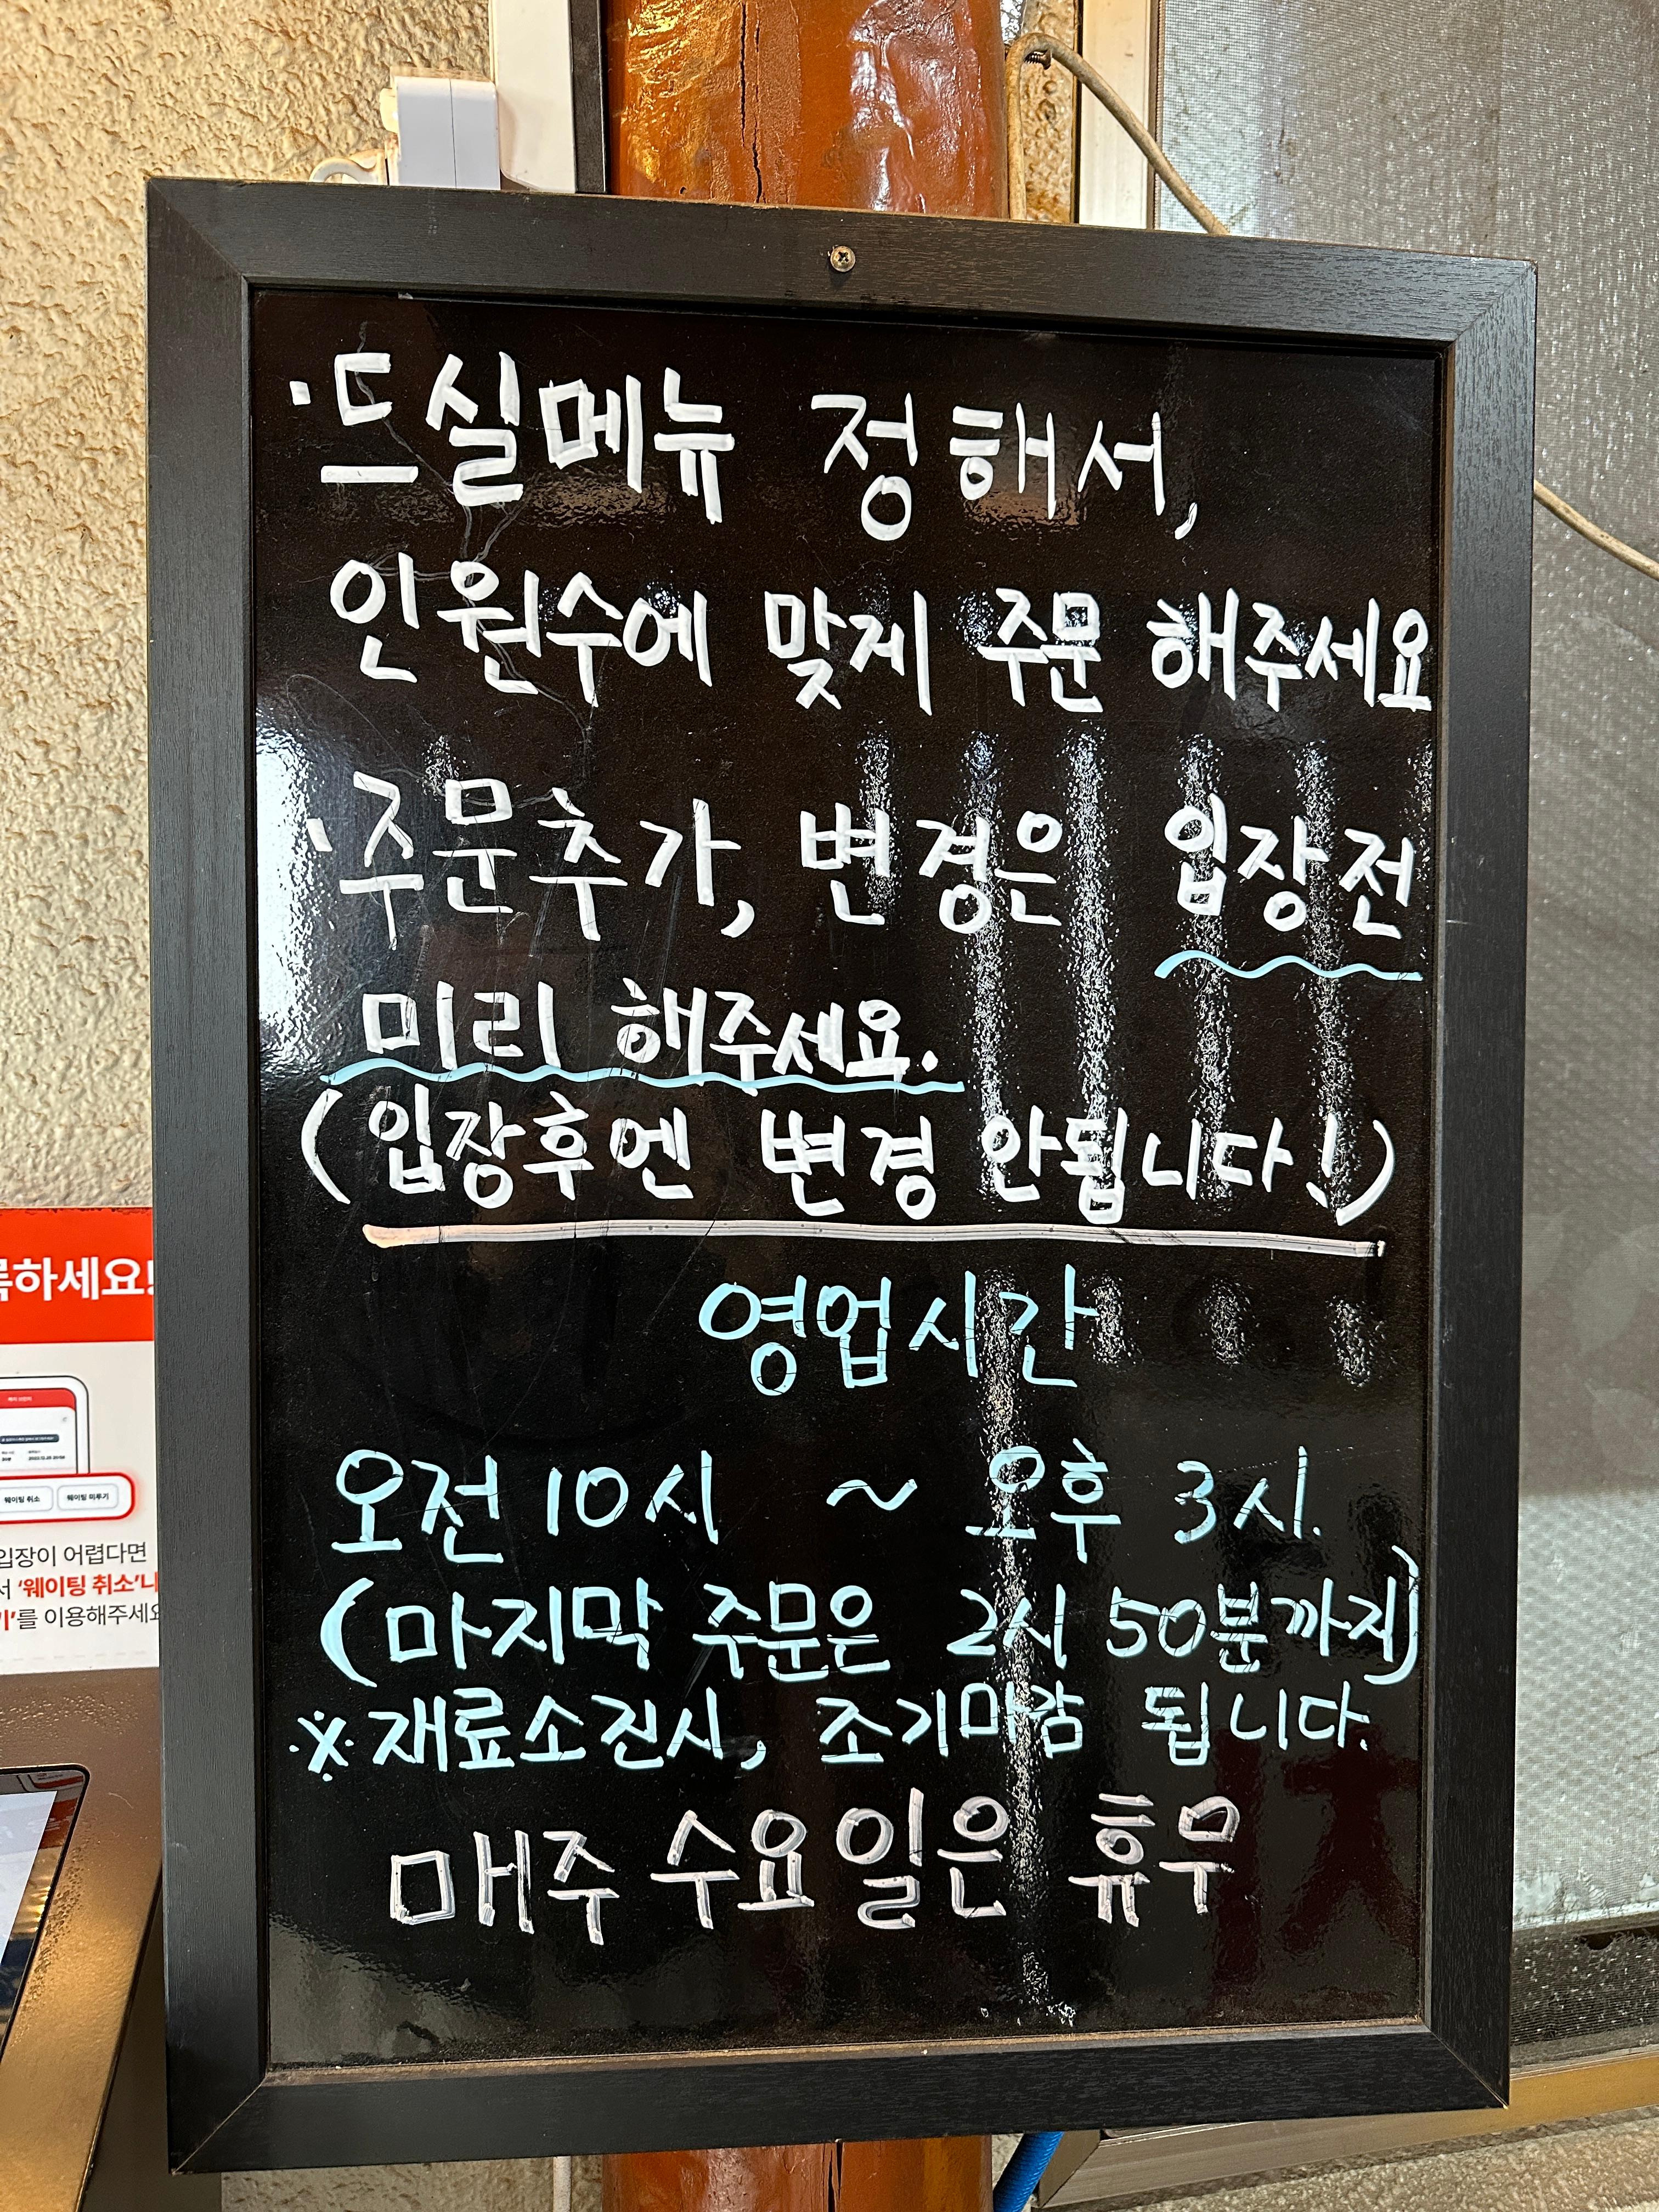 · 드실메뉴 정해서,
인원수에 맞게 주문 해주세요
· 주문추가, 변경은 입장전
미리 해주세요.
(입장후엔 변경 안됩니다!)
영업시간
오전 10시 ~ 오후 3시.
(마지막 주문은 2시 50분까지)
※재료소진시, 조기마감 됩니다.
매주 수요일은 휴무
록하세요!
웨이팅 취소 웨이팅 미루기
입장이 어렵다면
서 '웨이팅 취소'나
기'를 이용해주세요